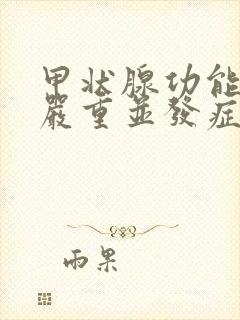 甲状腺功能
嚴重並發症
雨果